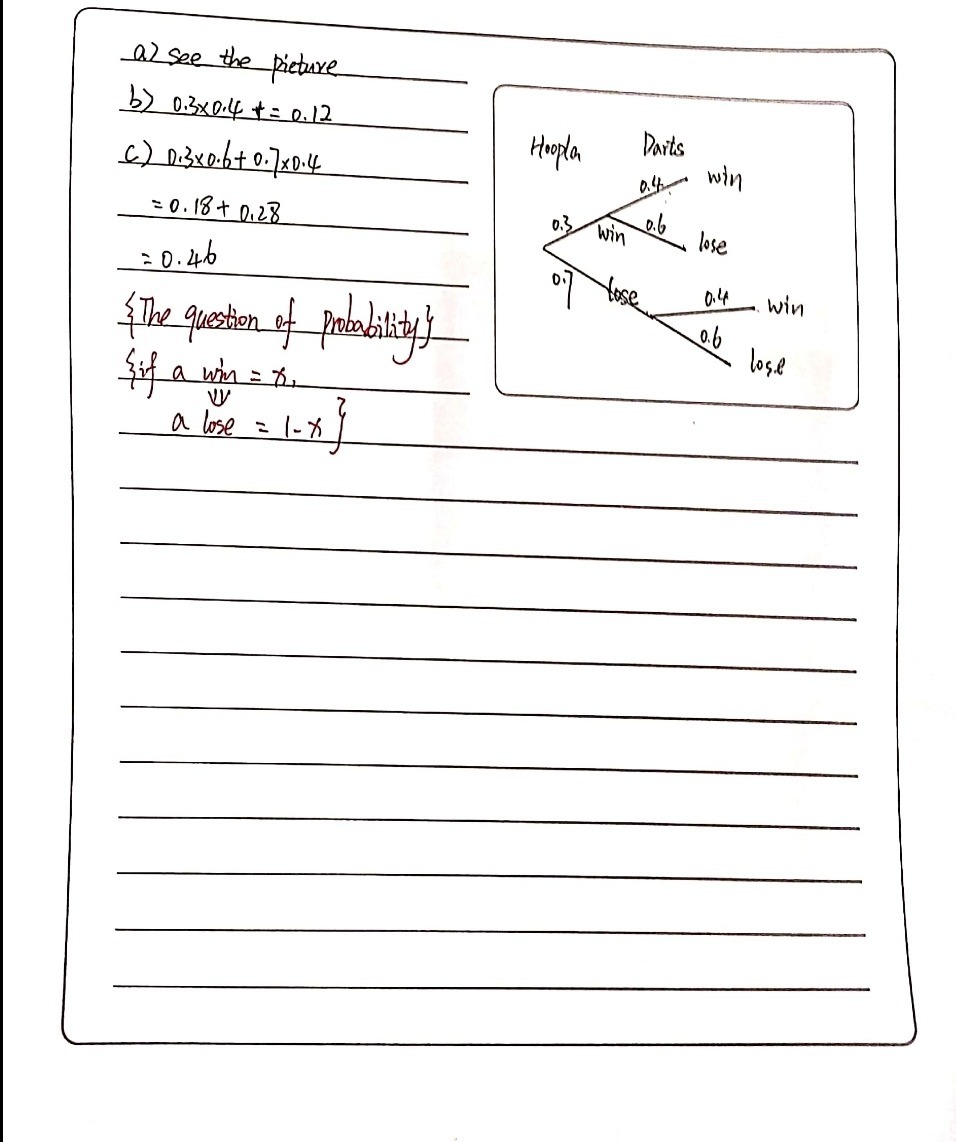 a) see the picture
b) 0.3×0.4 += 0.12
c) 0.3×0.6+0.7×0.4
=0.18+0.28
=0.46
{The question of probability}
{if a win = x,
⇓
a lose = 1-x}
Hoopla Darts
0.4 win
0.3 win 0.6 lose
0.7 lose 0.4 win
0.6 lose